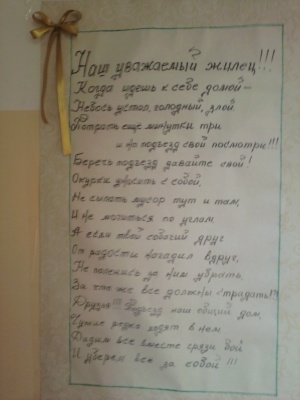 Наш уважаемый жилец!!!
Когда идешь к себе домой -
Небось устал, голодный, злой
Потрать еще минутки три
и на подъезд свой посмотри!!!
Беречь подъезд давайте свой!
Окурки уносить с собой,
Не сыпать мусор тут и там,
И не мочиться по углам.
А если твой собачий друг
От радости нагадил вдруг,
Не поленись за ним убрать
За что же все должны страдать!?!
Друзья!!! Подъезд наш общий дом,
Чужие редко ходят в нем
Дадим все вместе грязи бой
И уберем все за собой!!!